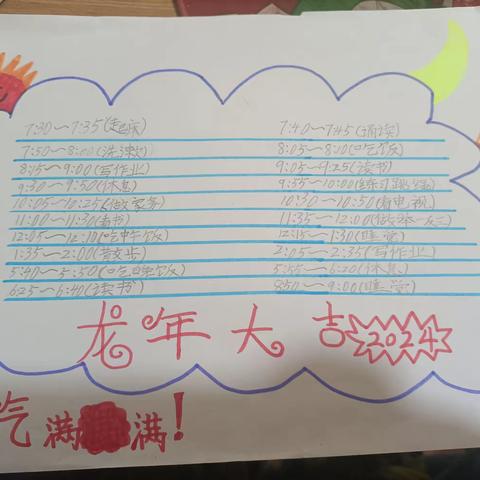 7:30~7:35(起床) 7:40~7:45(诵读)
7:50~8:00(洗漱) 8:05~8:10(吃饭)
8:15~9:00(写作业) 9:05~9:25(读书)
9:30~9:50(休息) 9:55~10:00(练习跳绳)
10:05~10:25(做家务) 10:30~10:50(看电视)
11:00~11:30(看书) 11:35~12:00(做举一反三)
12:05~12:10(吃中午饭) 12:15~1:30(睡觉)
1:35~2:00(散步) 2:05~2:35(写作业)
5:40~5:50(吃晚饭) 5:55~6:20(休息)
6:25~6:40(读书) 8:50~9:00(睡觉)
龙年大吉2024
气满满!